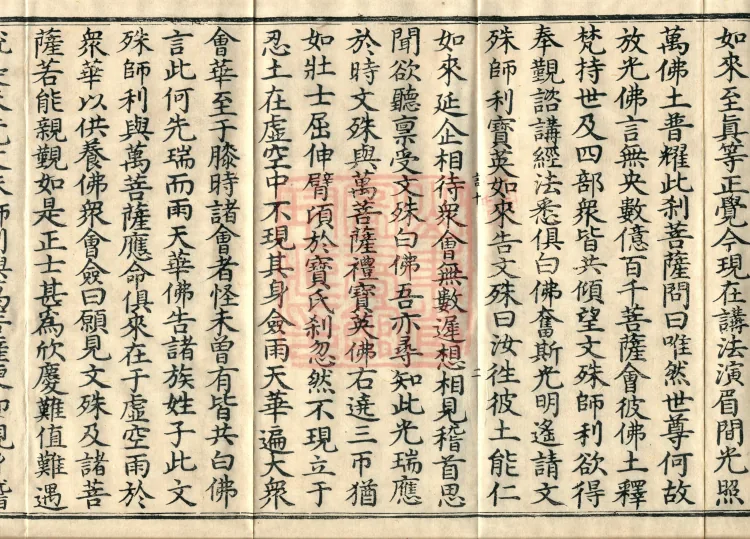 如來至真等正覺今現在講法演眉間光照
萬佛土普耀此剎菩薩問曰唯然世尊何故
放光佛言無央數億百千菩薩會彼佛土釋
梵持世及四部衆皆共傾望文殊師利欲得
奉觀諮講經法悉俱白佛奮斯光明遙請文
殊師利寶英如來告文殊曰汝徃彼土能仁
如來延企相待衆會無數遲想相見稽首思
聞欲聽稟受文殊白佛吾亦尋知此光瑞應
於時文殊與萬菩薩禮寶英佛右遶三帀猶
如壯士屈伸臂頃於寶氏剎忽然不現立于
忍土在虛空中不現其身僉雨天華遍大衆
會華至于膝時諸會者怪未曾有皆共白佛
言此何先瑞而雨天華佛告諸族姓子此文
殊師利與萬菩薩應命俱來在于虛空雨於
衆華以供養佛衆會僉曰願見文殊及諸菩
薩若能親覲如是正士甚爲欣慶難值難遇